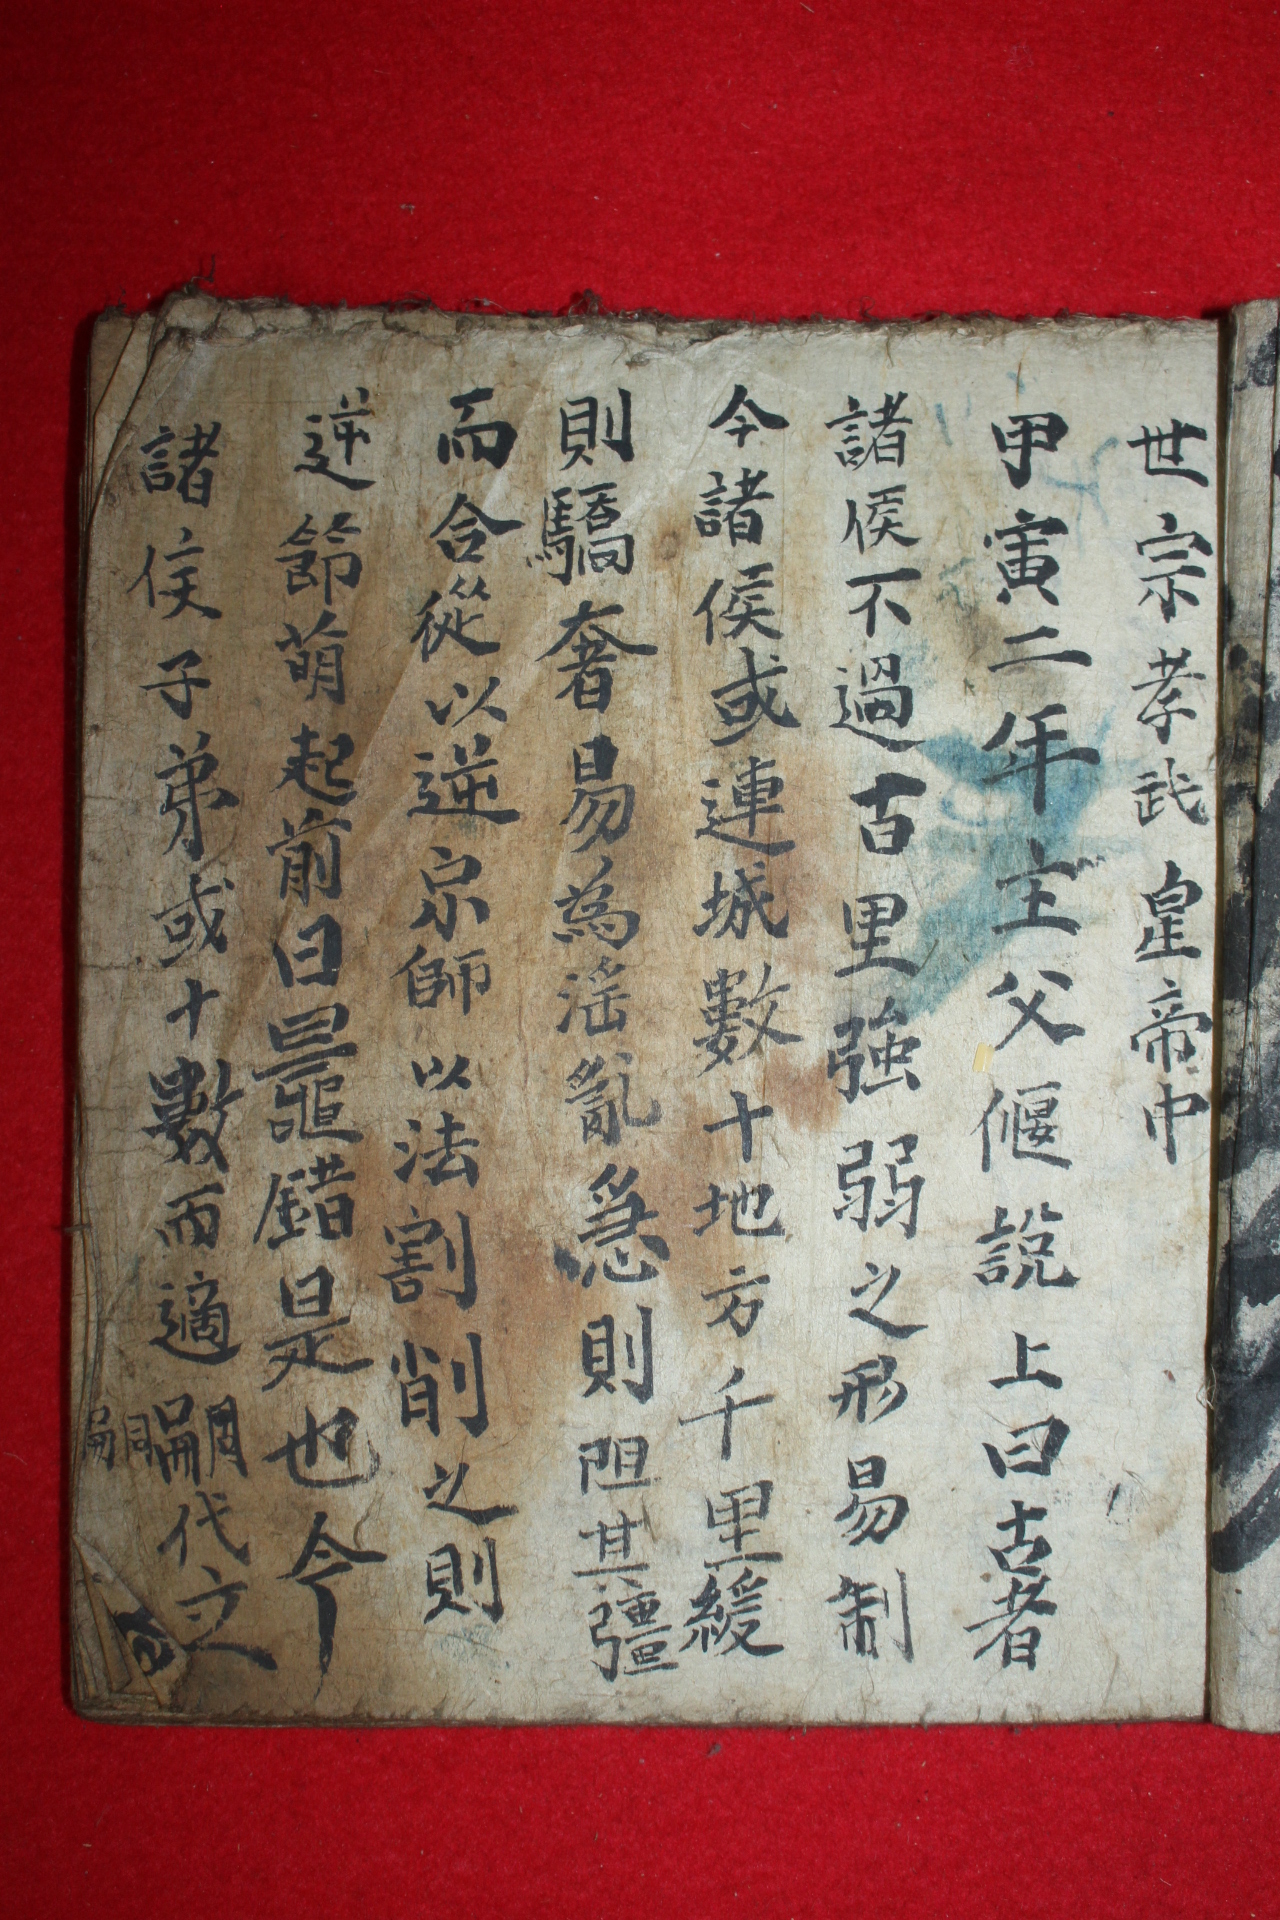 世宗孝武皇帝中
甲寅二年主父偃說上曰古者
諸侯不過百里強弱之形易制
今諸侯或連城數十地方千里緩
則驕奢易為滛亂急則阻其彊
而合從以逆京師以法割削之則
逆節萌起前曰鼂錯是也今
諸侯子弟或十數而適嗣代立